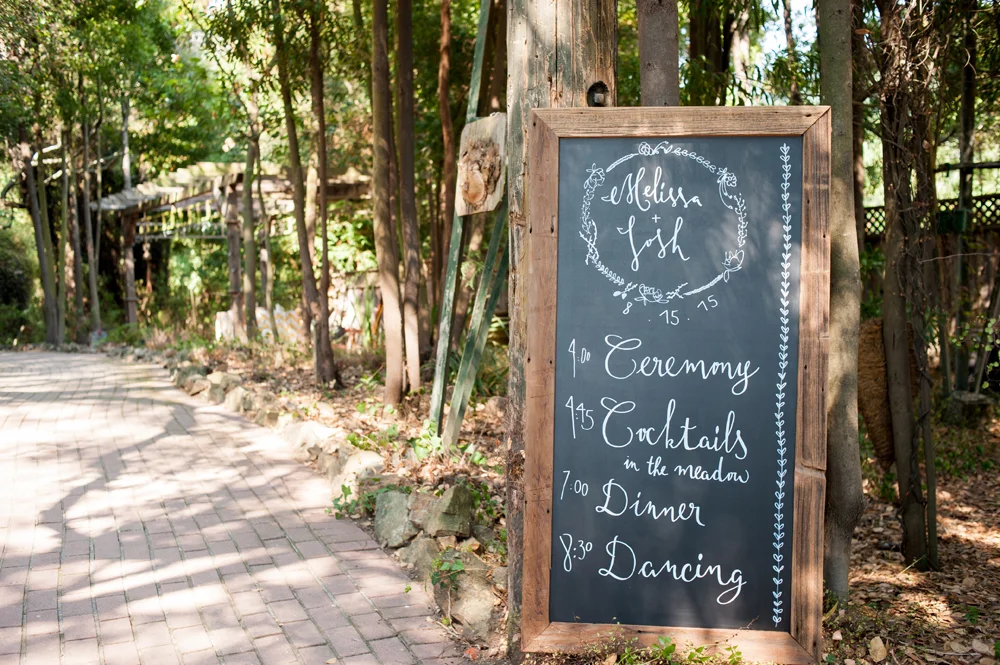 Melissa
+
Josh
8.15.15
4:00 Ceremony
4:45 Cocktails
in the meadow
7:00 Dinner
8:30 Dancing